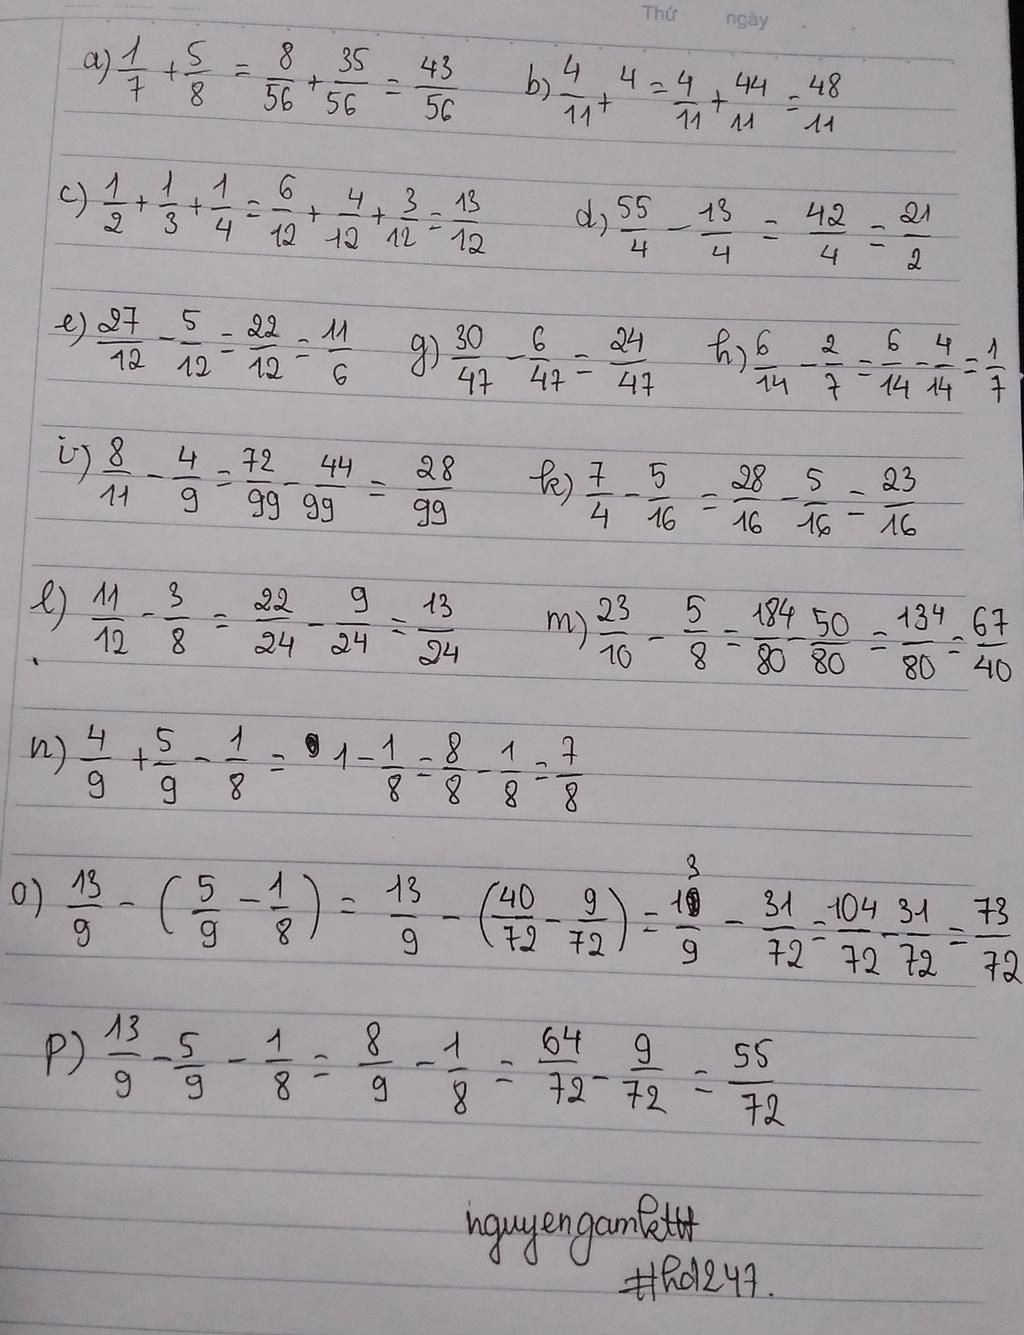 Thứ ngày
a) 1/7 + 5/8 = 8/56 + 35/56 = 43/56 b) 4/11 + 4 = 4/11 + 44/11 = 48/11
c) 1/2 + 1/3 + 1/4 = 6/12 + 4/12 + 3/12 = 13/12 d) 55/4 - 13/4 = 42/4 = 21/2
e) 27/12 - 5/12 = 22/12 = 11/6 g) 30/47 - 6/47 = 24/47 h) 6/14 - 2/7 = 6/14 - 4/14 = 1/7
i) 8/11 - 4/9 = 72/99 - 44/99 = 28/99 k) 7/4 - 5/16 = 28/16 - 5/16 = 23/16
l) 11/12 - 3/8 = 22/24 - 9/24 = 13/24 m) 23/10 - 5/8 = 184/80 - 50/80 = 134/80 = 67/40
n) 4/9 + 5/9 - 1/8 = 1 - 1/8 = 8/8 - 1/8 = 7/8
o) 13/9 - (5/9 - 1/8) = 13/9 - (40/72 - 9/72) = 13/9 - 31/72 = 104/72 - 31/72 = 73/72
p) 13/9 - 5/9 - 1/8 = 8/9 - 1/8 = 64/72 - 9/72 = 55/72
#hd247.